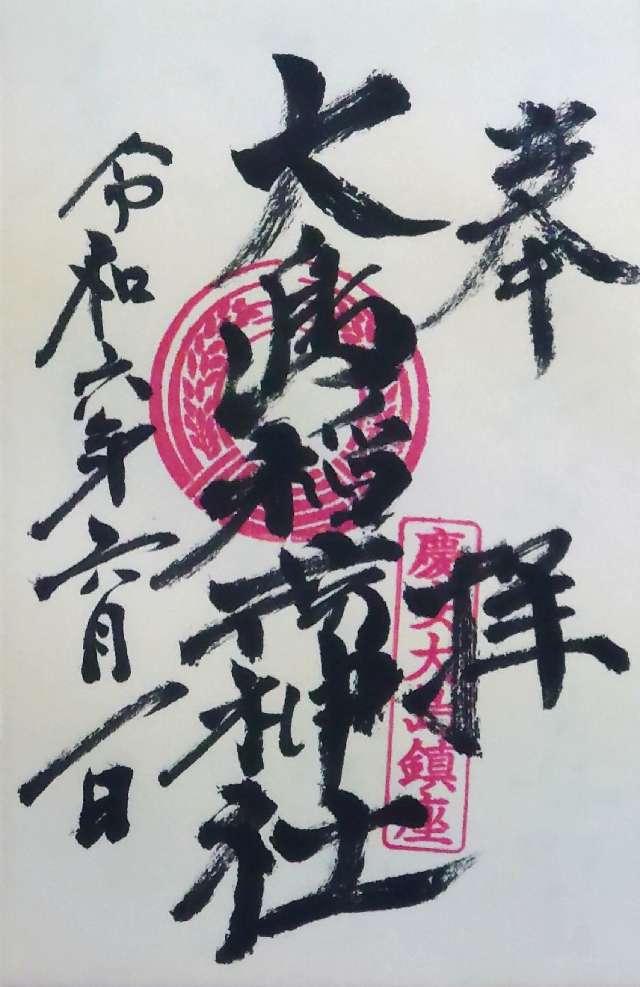 奉拝
慶安大島鎮座
大嶋稲荷神社
令和六年六月一日